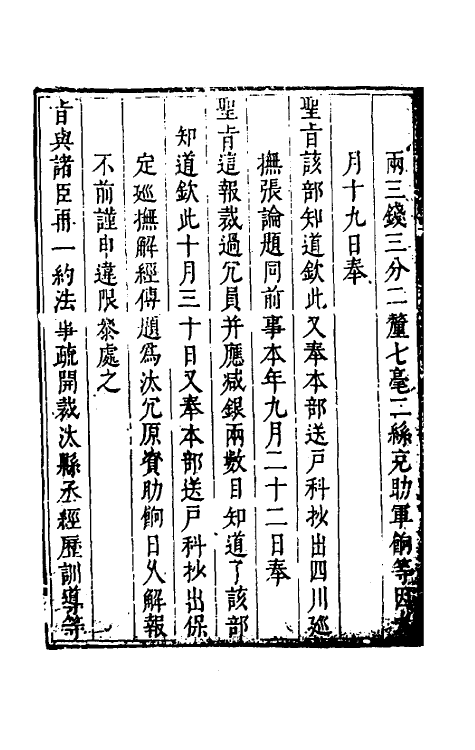 兩三錢三分二釐七毫二絲充助軍餉等因
月十九日奉
聖旨該部知道欽此又奉本部送戶科抄出四川廵
撫張論題同前事本年九月二十二日奉
聖旨這報裁過冗員并應减銀兩數目知道了該部
知道欽此十月三十日又奉本部送戶科抄出保
定廵撫解經傳題為汰冗原資助餉日乆解報
不前謹申違限叅處之
旨與諸臣再一約法事疏開裁汰縣丞經歷訓導等